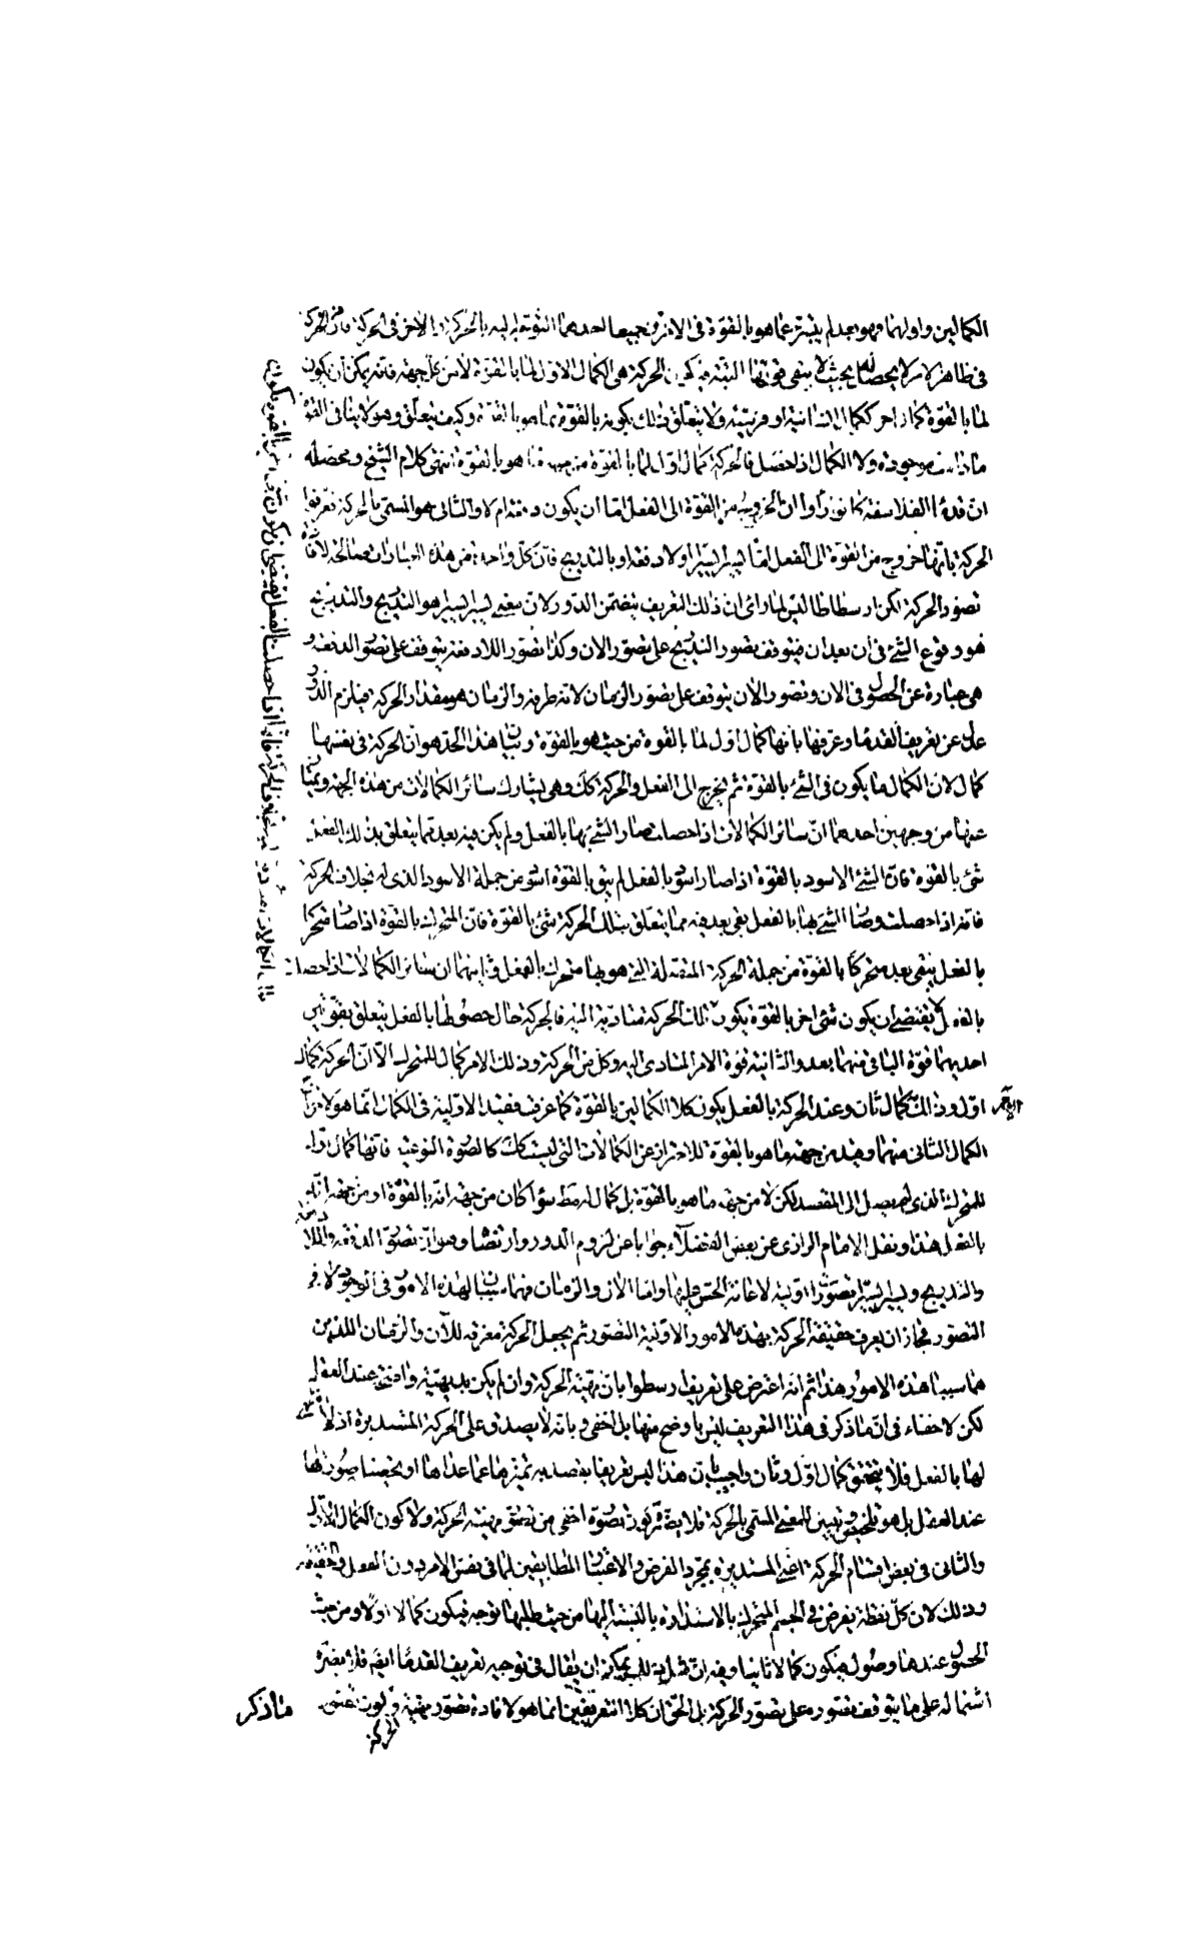 الكمالين واولهما وهو بعد لم يتبرء عما هو بالقوة فى الامرين جميعا احدهما المتوجه اليه بالحركة والاخر فى الحركة فان الحركة
فى ظاهر الامر لا يحصل له بحيث لا يبقى قوتها البتة فيكون الحركة هى الكمال الاول لما بالقوة لا من كل جهة فانه يمكن ان يكون
لما بالقوة كمال اخر ككمال انسانية او فرسية ولا يتعلق ذلك بكونه بالقوة بما هو بالقوة وكيف يتعلق وهو لا ينافى القوة
ما دامت موجودة ولا الكمال اذا حصل فالحركة كمال اول لما بالقوة من جهة ما هو بالقوة انتهى كلام الشيخ ومحصله
ان قدماء الفلاسفة كانوا رأوا ان الخروج من القوة الى الفعل اما ان يكون دفعة ام لا والثانى هو المسمى بالحركة فعرفوا
الحركة بانها خروج من القوة الى الفعل اما يسيرا يسيرا او لا دفعة او بالتدريج فان كل واحدة من هذه العبارات صالحة لافادة
تصور الحركة لكن ارسطاطاليس لما رأى ان ذلك التعريف يتضمن الدور لان معنى يسيرا يسيرا هو التدريج والتدريج
هو وقوع الشئ فى ان بعد ان فيتوقف تصور التدريج على تصور الان وكذا تصور اللادفعة يتوقف على تصور الدفعة و
هى عبارة عن الحصول فى الان وتصور الان يتوقف على تصور الزمان لانه طرفه والزمان هو مقدار الحركة فيلزم الدور
عدل عن تعريف القدماء وعرفها بانها كمال اول لما بالقوة من حيث هو بالقوة وبيان هذا الحد هو ان الحركة فى نفسها
كمال لان الكمال ما يكون فى الشئ بالقوة ثم يخرج الى الفعل والحركة كك وهى يشارك سائر الكمالات من هذه الجهة ويمتاز
عنها من وجهين احدهما ان سائر الكمالات اذا حصلت صار الشئ بها بالفعل ولم يكن فيه بعد مما يتعلق بذلك الفعل
شئ بالقوة فان الشئ الاسود بالقوة اذا صار اسود بالفعل لم يبق بالقوة اسود من جملة الاسود الذى له بخلاف الحركة
فانها اذا حصلت وصار الشئ بها بالفعل بقى بعد فيه مما يتعلق بتلك الحركة شئ بالقوة فان المتحرك بالقوة اذا صار متحركا
بالفعل يبقى بعد متحركا بالقوة من جملة الحركة المتصلة التى هو بها متحرك بالفعل وثانيهما ان سائر الكمالات اذا حصلت
بالفعل لا يقتضى ان يكون شئ اخر بالقوة يكون تلك الحركة متادية اليه فالحركة حال حصولها بالفعل يتعلق بقوتين
احديهما قوة الباقى منهما بعد والثانية قوة الامر المتادى اليه وكل من الحركة وذلك الامر كمال للمتحرك الا ان الحركة كمال
اول وذلك كمال ثان وعند الحركة بالفعل يكون كلا الكمالين بالقوة كما عرف فقيد الاولية فى الكمال انما هو لاخراج
الاخر
الكمال الثانى منهما وقيد من جهة ما هو بالقوة للاحتراز عن الكمالات التى ليست كك كالصورة النوعية فانها كمال اول
للمتحرك الذى لم يصل الى المقصد لكن لا من جهة ما هو بالقوة بل كمال له مط سواء كان من جهة انه بالقوة او من جهة انه
بالفعل هذا ونقل الامام الرازى عن بعض الفضلاء جوابا عن لزوم الدور وارتضاه وهو ان تصور الدفعة واللادفعة
والتدريج ويسيرا يسيرا تصورا اولية لاعانة الحس عليها واما الان والزمان فهما سببان لهذه الامور فى الوجود لا فى
التصور فجاز ان يعرف حقيقة الحركة بهذه الامور الاولية التصور ثم يجعل الحركة معرفة للآن والزمان اللذين
هما سببا هذه الامور هذا ثم انه اعترض على تعريف ارسطو بان مهية الحركة وان لم يكن بديهية واضحة عند العقل
لكن لا خفاء فى ان ما ذكر فى هذا التعريف ليس باوضح منها بل اخفى وبانه لا يصدق على الحركة المستديرة اذ لا منتهى
لها بالفعل فلا يتحقق كمال اول وثان واجيب بان هذا ليس تعريفا يقصد به تميزها عما عداها او تحصيل صورتها
عند العقل بل هو تلخيص وتبيين للمعنى المسمى بالحركة فلا يضره كون تصوره اخفى من تصور مهية الحركة ولا كون الكمال الاول
والثانى فى بعض اقسام الحركة اعنى المستديرة بمجرد الفرض والاعتبار المطابقين لما فى نفس الامر دون الفعل والحقيقة
وذلك لان كل نقطة تفرض فى الجسم المتحرك بالاستدارة بالنسبة اليها من حيث طلبها توجه فيكون كمالا اولا ومن حيث
الحصول عندها وصول فيكون كمالا ثانيا وفيه ان مثل ذلك يمكن ان يقال فى توجيه تعريف القدماء ايضا فلا يضره
اشتماله على ما يتوقف تصوره على تصور الحركة بل الحق ان كلا التعريفين انما هو لافادة تصور مهية
الحركة
ما ذكر